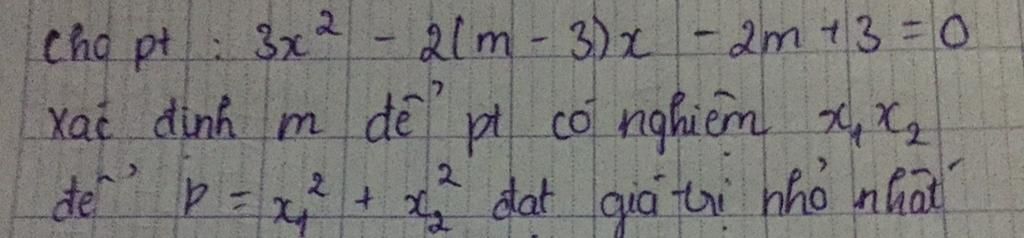 Cho pt : 3x² - 2(m - 3)x - 2m + 3 = 0
xác định m để pt có nghiệm x₁ x₂
để P = x₁² + x₂² đạt giá trị nhỏ nhất